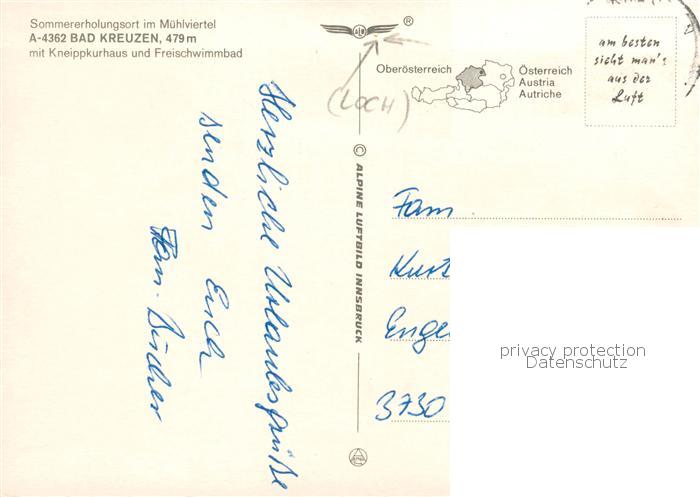 Sommererholungsort im Mühlviertel
A-4362 BAD KREUZEN, 479 m
mit Kneippkurhaus und Freischwimmbad
ALI
®
(LOCH)
Oberösterreich
Österreich
Austria
Autriche
am besten
sieht man's
aus der
Luft
Herzliche Urlaubsgrüße
senden Euch
Fam.
© ALPINE LUFTBILD INNSBRUCK
Fam
Kurt
Enge
3730
privacy protection
Datenschutz